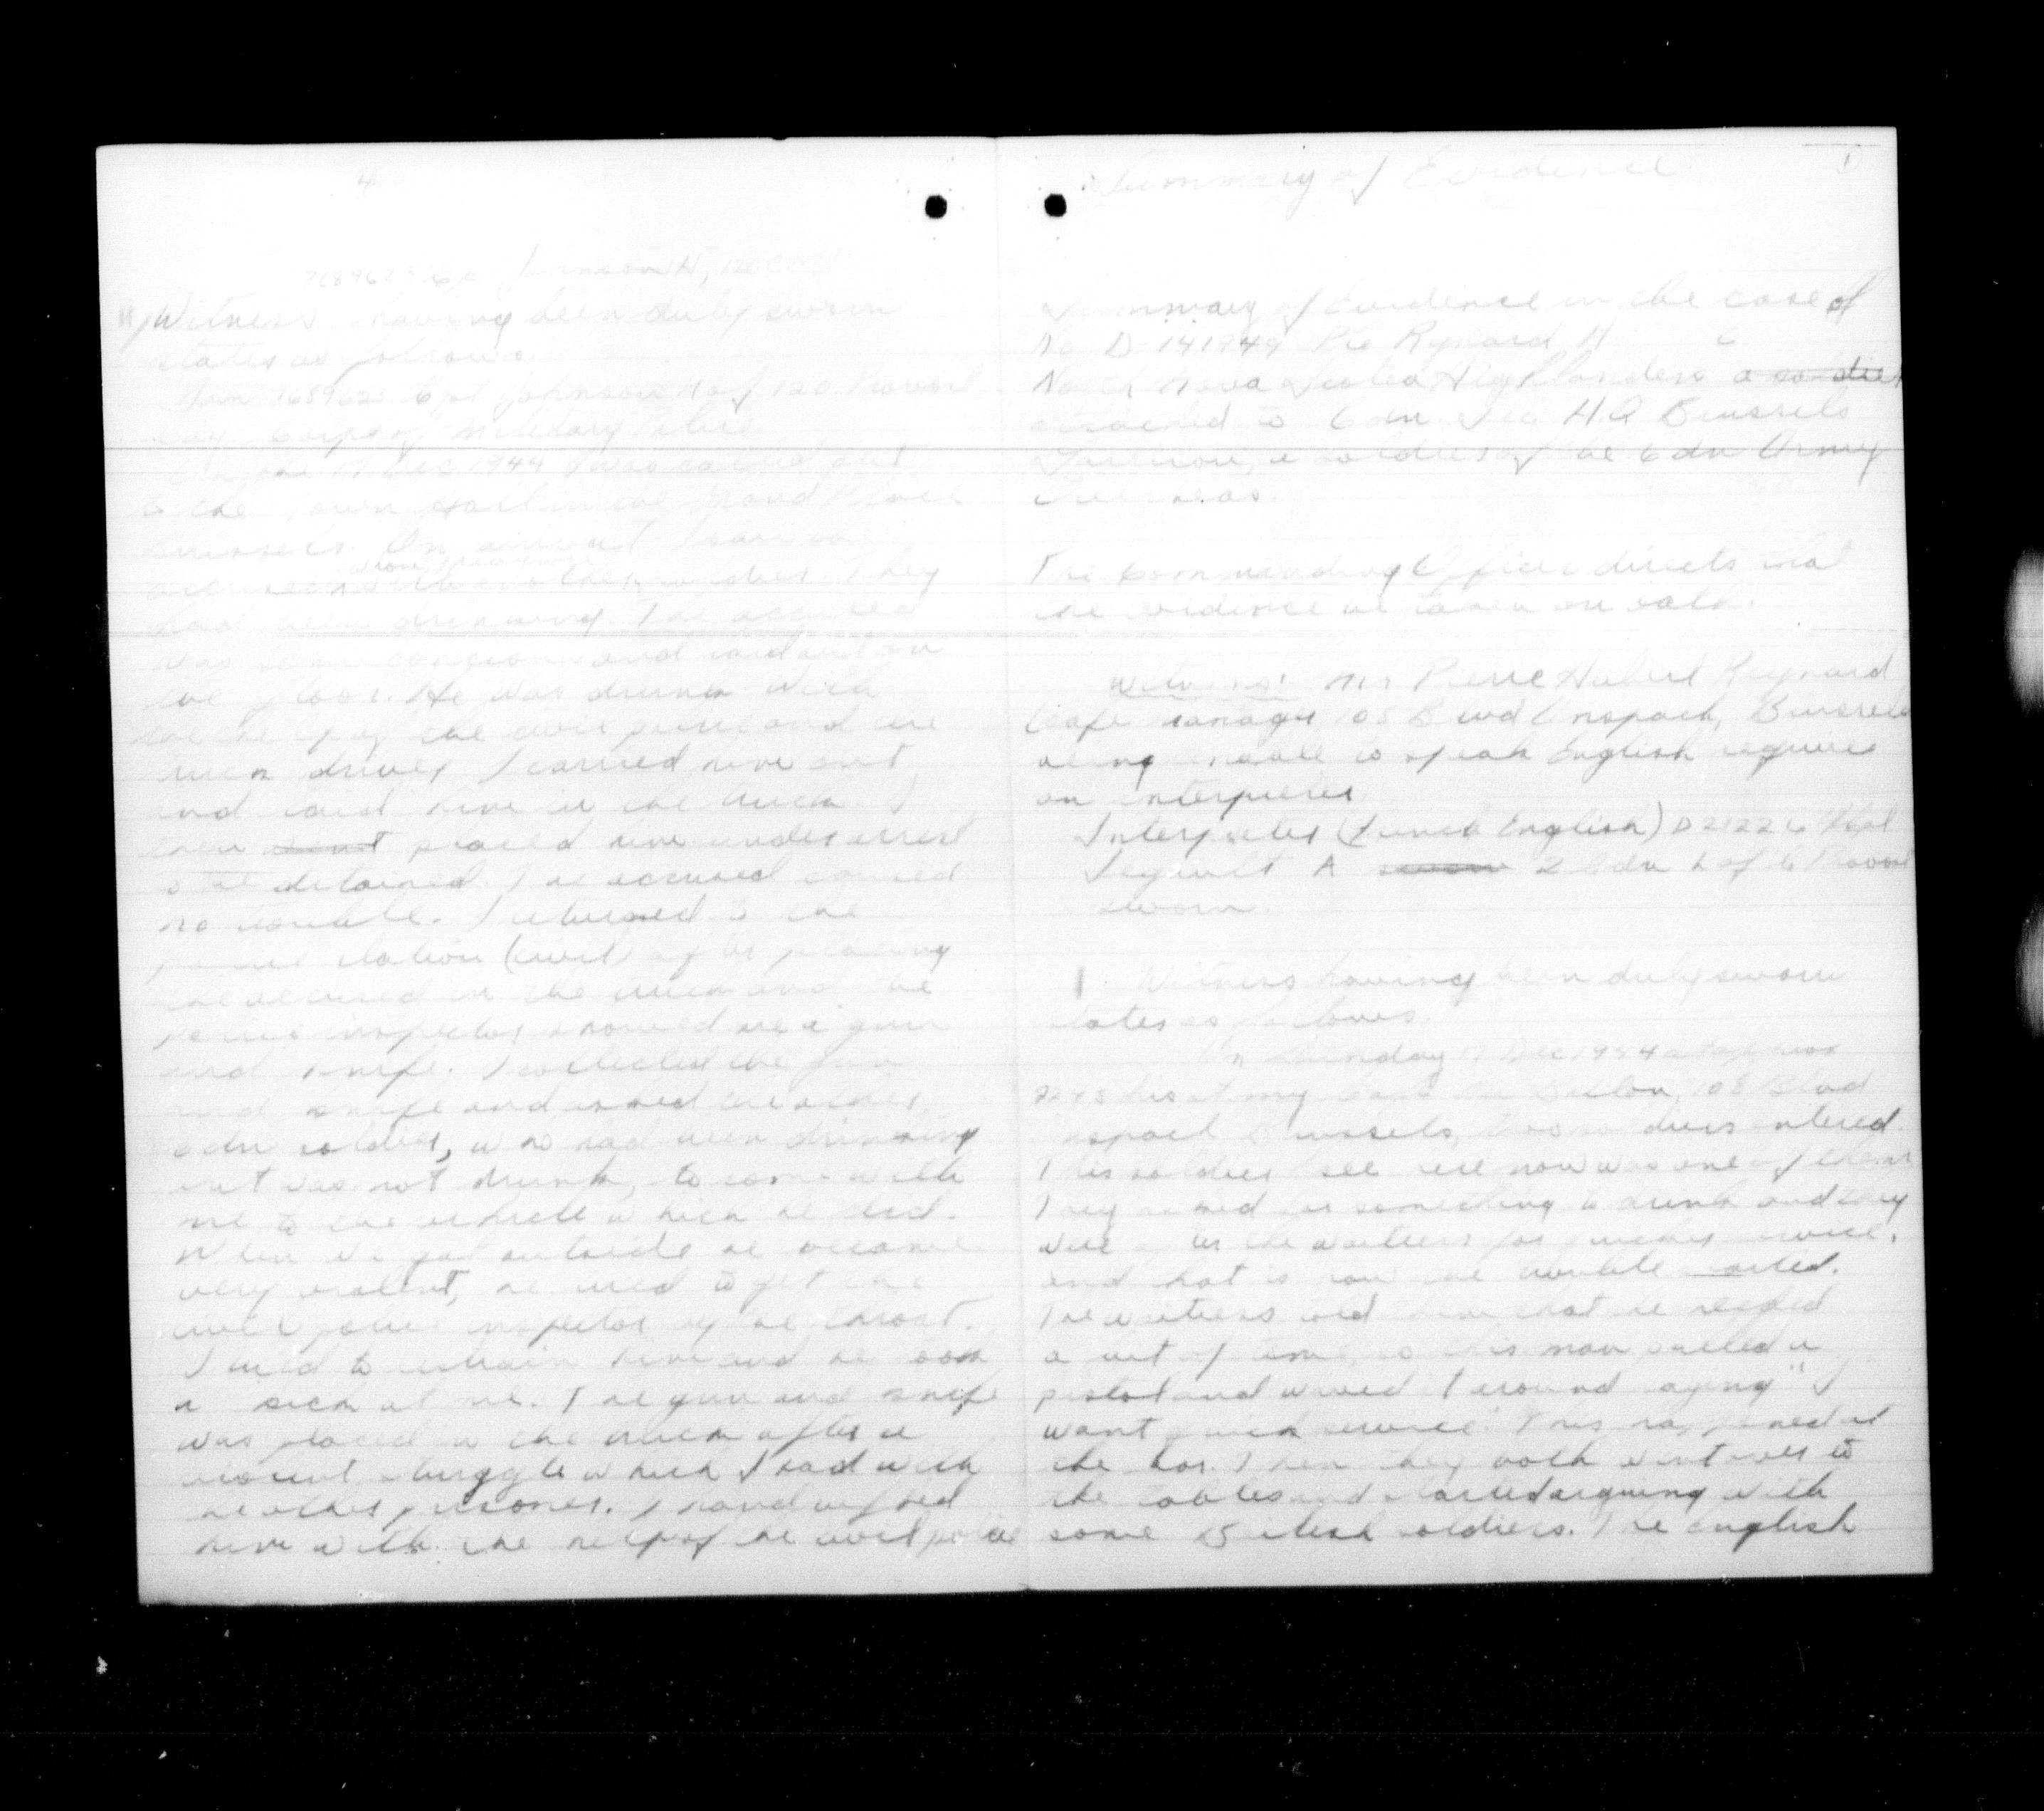 4
Johnson H,
Witness having been duly sworn
states as follows.
I am 7689620 Cpl Johnson H of 120 Provost
Coy Corps of Military Police
17 Dec 1944 I was called out
to the Town Hall in the Grand Place
Brussels. On arrival I saw the
accused with another soldier. They
had been drinking. The accused
was semi conscious and laid out on
the floor. He was drunk. With
the help of the civil police and the
truck driver I carried him out
and laid him in the truck. I
then went placed him under arrest
to be detained. The accused caused
no trouble. I returned to the
police station (civil) after placing
the accused in the truck and the
police inspector showed me a gun
and knife. I collected the gun
and knife and asked the other
Cdn soldier, who had been drinking
but was not drunk, to come with
me to the vehicle which he did.
When we got outside he became
very violent, he tried to get the
civil police inspector by the throat.
I tried to restrain him and he took
a kick at me. The gun and knife
was placed in the truck after a
violent struggle which I had with
the other prisoner. I handcuffed
him with the help of the civil police
1
Summary of Evidence
Summary of Evidence in the case of
No D 141949 Pte Rynard H
North Nova Scotia Highlanders a soldier
attached to Cdn Sec HQ Brussels
Garrison, a soldier of the Cdn Army
Overseas.
The Commanding Officer directs that
the evidence be taken on oath.
Witness: Mr Pierre Hubert Reynard
Cafe manager 105 Blvd Anspach, Brussels
being unable to speak English requires
an interpreter
Interpreter (French English) D 21226
A sworn 2 Cdn L of C Provost
sworn.
1. Witness having been duly sworn
states as follows.
On Sunday 17 Dec 1944 at approx
2245 hrs at my cafe 105 Blvd
Anspach Brussels, two soldiers entered.
This soldier I see here now was one of them.
They asked for something to drink and they
were after the waitress for quicker service,
and that is how the trouble started.
The waitress told them that he needed
a bit of time, so this man pulled a
pistol and waved it around saying "I
want quick service." This happened at
the bar. Then they both went over to
the tables and started arguing with
some British soldiers. The English